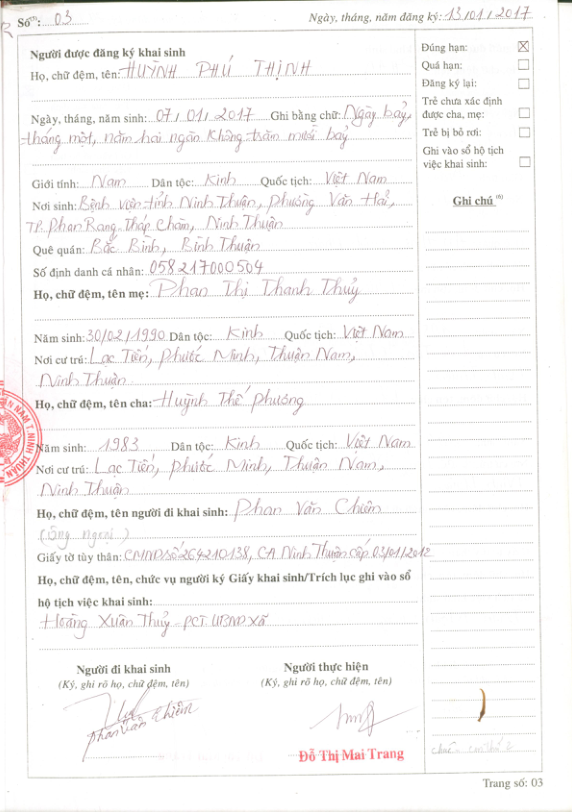 Số: 03
Ngày, tháng, năm đăng ký: 13/01/2017
Người được đăng ký khai sinh
Họ, chữ đệm, tên: HUỲNH PHÚ THỊNH
Ngày, tháng, năm sinh: 07/01/2017 Ghi bằng chữ: Ngày bảy,
tháng một, năm hai ngàn không trăm mười bảy
Giới tính: Nam Dân tộc: Kinh Quốc tịch: Việt Nam
Nơi sinh: Bệnh viện tỉnh Ninh Thuận, phường Văn Hải,
TP. Phan Rang-Tháp Chàm, Ninh Thuận
Quê quán: Bắc Bình, Bình Thuận
Số định danh cá nhân: 058217000504
Họ, chữ đệm, tên mẹ: Phan Thị Thanh Thủy
Năm sinh: 30/02/1990 Dân tộc: Kinh Quốc tịch: Việt Nam
Nơi cư trú: Lạc Tiến, Phước Minh, Thuận Nam,
Ninh Thuận
Họ, chữ đệm, tên cha: Huỳnh Thế Phương
Năm sinh: 1983 Dân tộc: Kinh Quốc tịch: Việt Nam
Nơi cư trú: Lạc Tiến, Phước Minh, Thuận Nam,
Ninh Thuận
Họ, chữ đệm, tên người đi khai sinh: Phan Văn
(Ông ngoại)
Giấy tờ tùy thân: CMND số 264210138, CA Ninh Thuận cấp 03/01/2012
Họ, chữ đệm, tên, chức vụ người ký Giấy khai sinh/Trích lục ghi vào sổ
hộ tịch việc khai sinh:
Hoàng Xuân Thủy - PCT. UBND Xã
Người đi khai sinh
(Ký, ghi rõ họ, chữ đệm, tên)
Phan Văn
Người thực hiện
(Ký, ghi rõ họ, chữ đệm, tên)
Đỗ Thị Mai Trang
Đúng hạn: X
Quá hạn:
Đăng ký lại:
Trẻ chưa xác định
được cha, mẹ:
Trẻ bị bỏ rơi:
Ghi vào sổ hộ tịch
việc khai sinh:
Ghi chú (6)
NAM T.NINH THUẬN
Trang số: 03